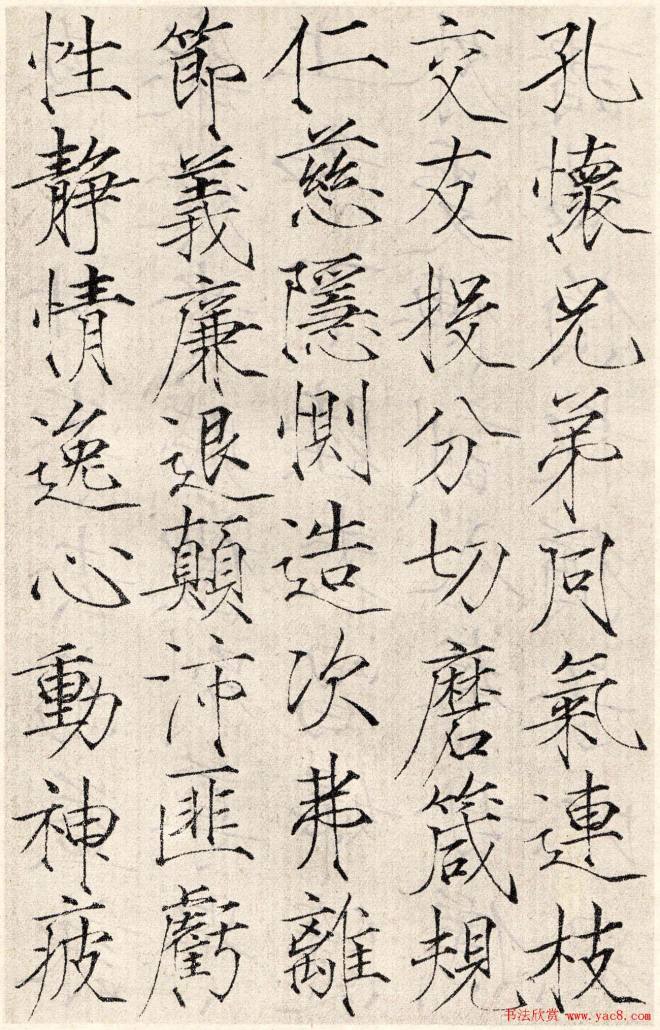 孔懷兄弟同氣連枝
交友投分切磨箴規
仁慈隱惻造次弗離
節義廉退顛沛匪虧
性靜情逸心動神疲
书法欣赏 www.yac8.com